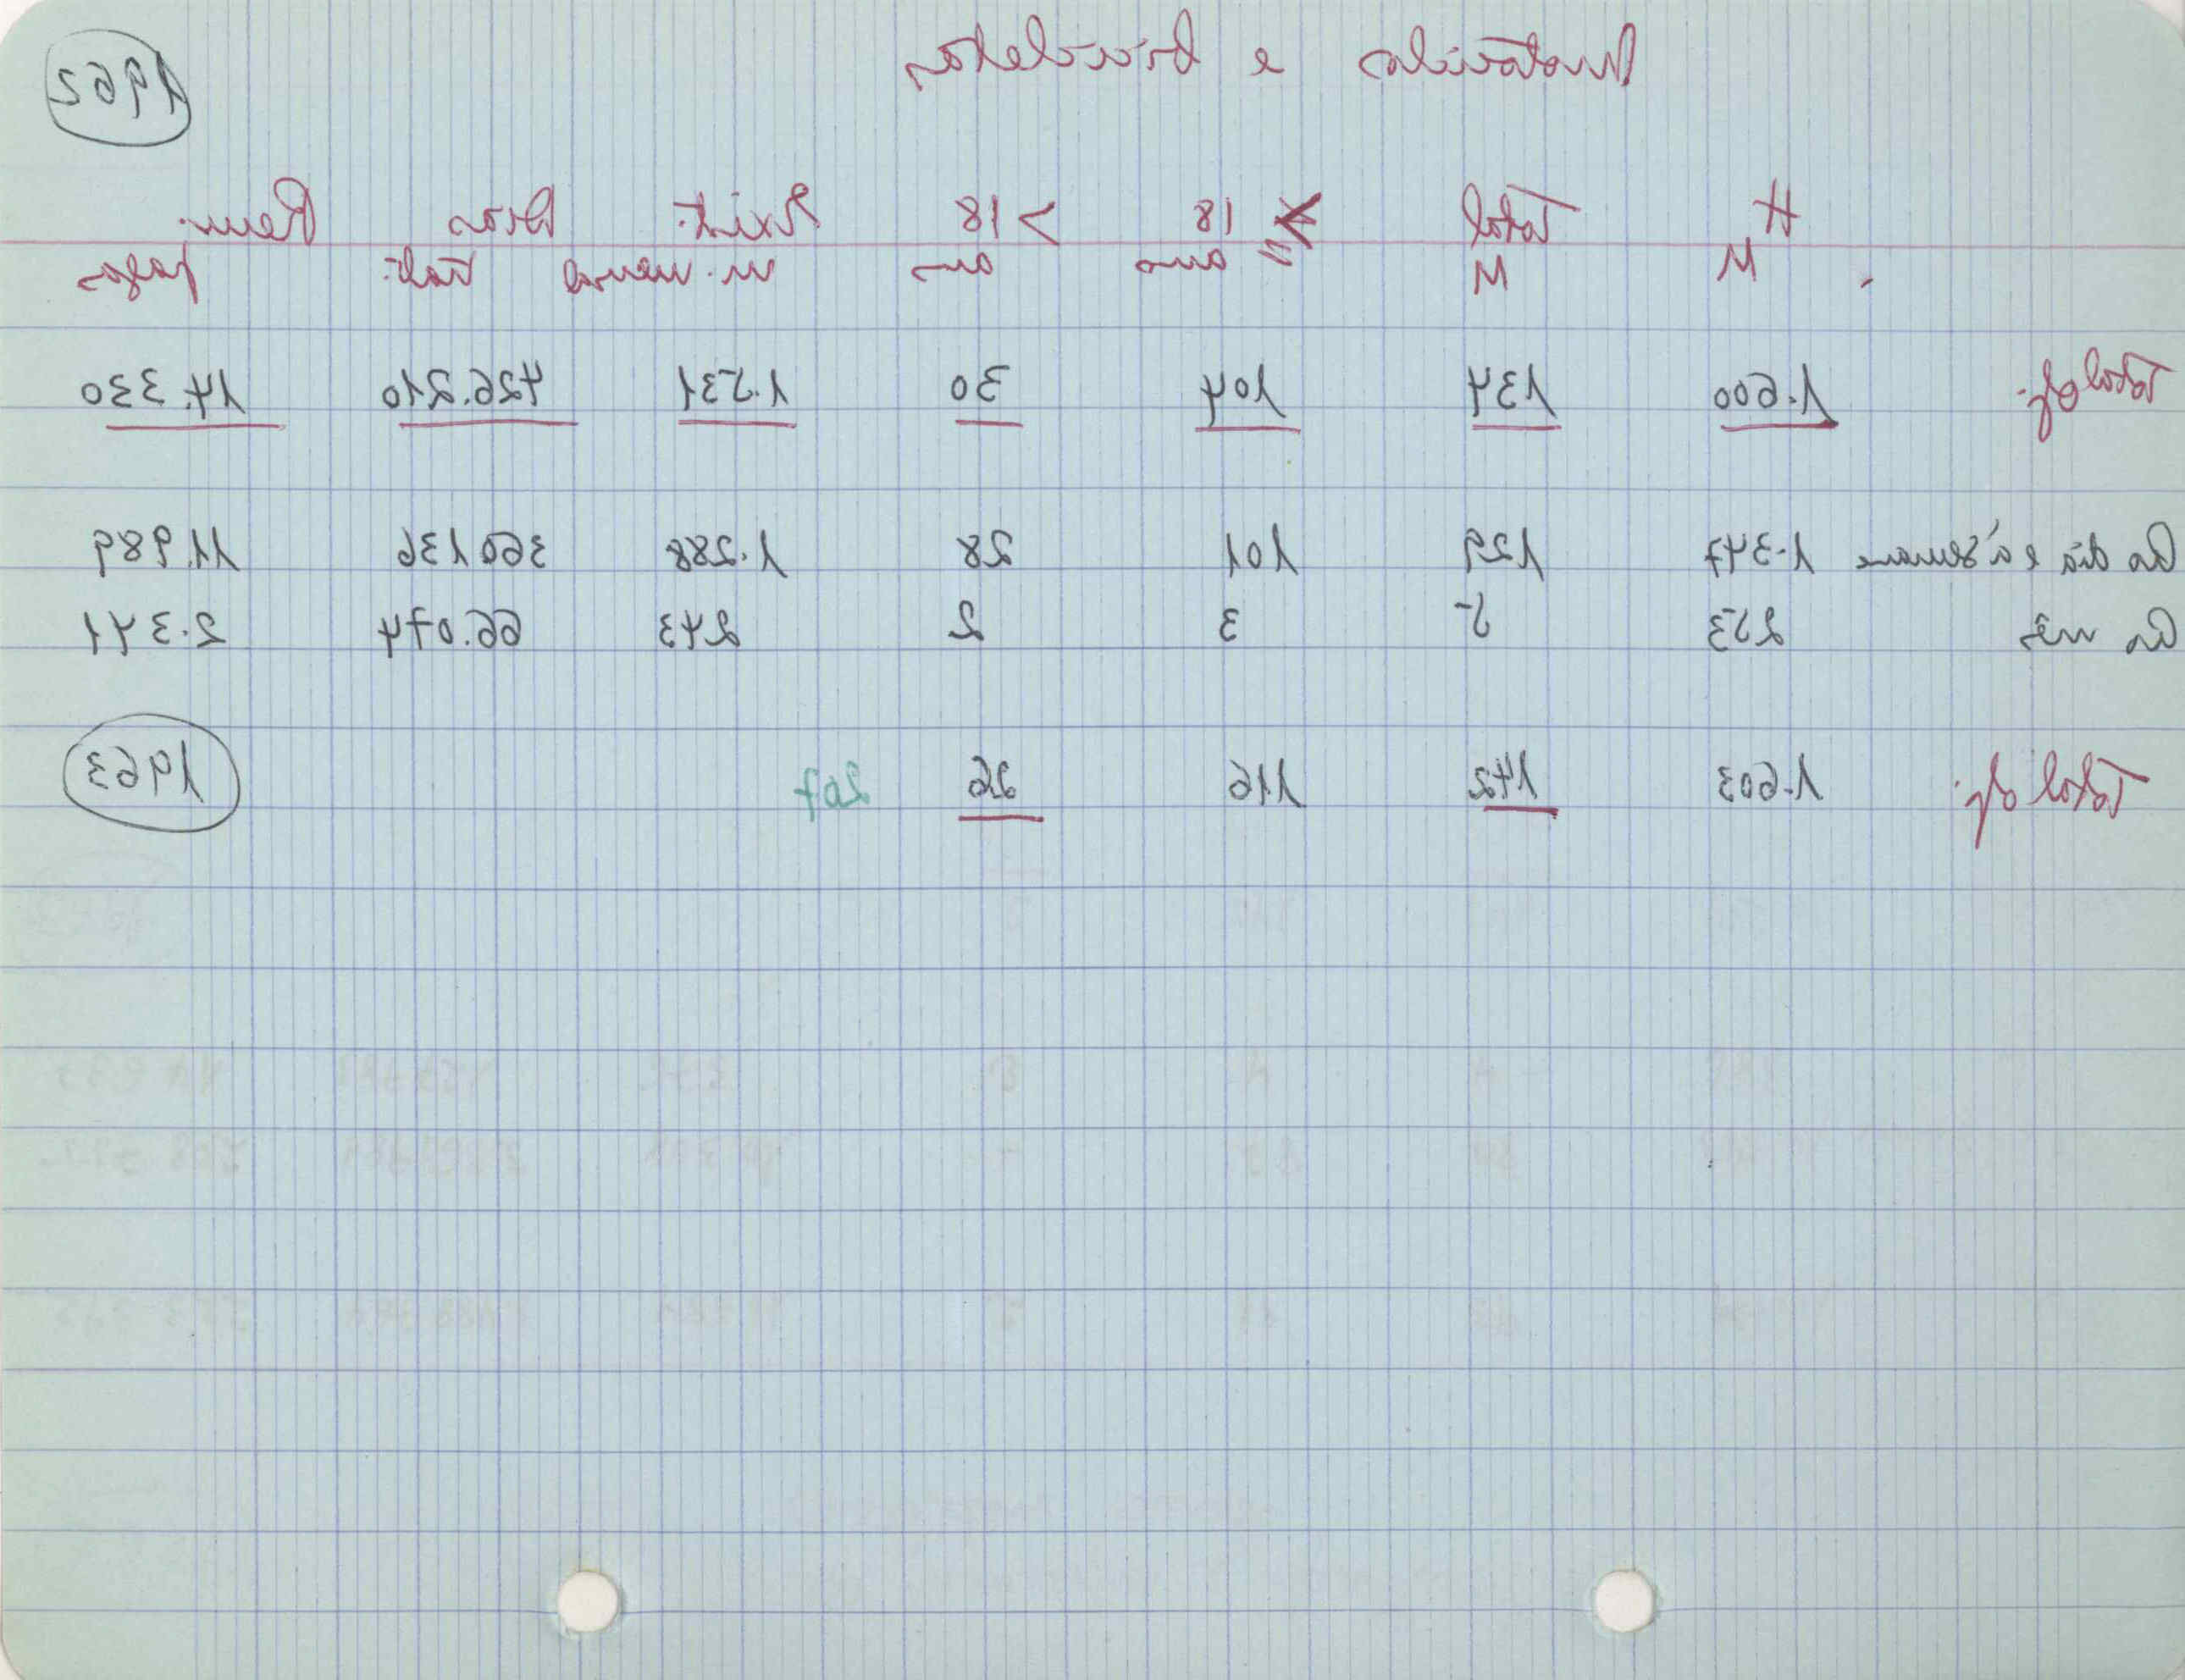 Motociclos e bicicletas
1962
H Total ≥ 18 > 18 Exist. Dias Rem.
M M anos anos m. mensal trab. pagas
Total of. 1.600 134 104 30 1.531 426.210 14.330
Ao dia e à semana 1.347 129 101 28 1.288 360136 11.989
Ao mês 253 5 3 2 243 66.074 2.341
Total of. 1.603 142 116 26 207 1963